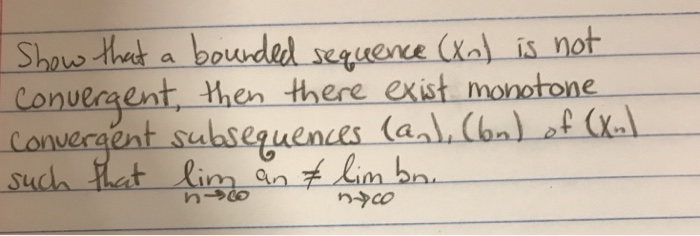 Show that a bounded sequence (xn) is not
convergent, then there exist monotone
convergent subsequences (an), (bn) of (xn)
such that lim an ≠ lim bn.
n→∞ n→∞